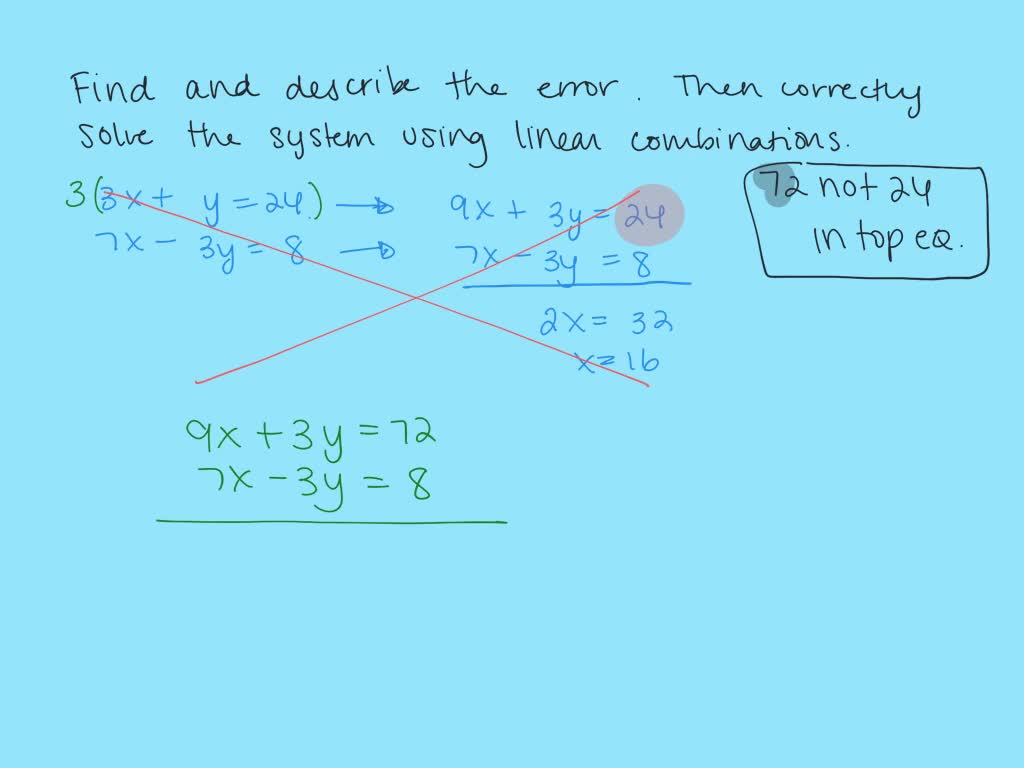 Find and describe the error. Then correctly
solve the system using linear combinations.
3(3x + y = 24.) → 9x + 3y = 24
7x - 3y = 8 → 7x - 3y = 8
2x = 32
x = 16
72 not 24
in top eq.
9x + 3y = 72
7x - 3y = 8